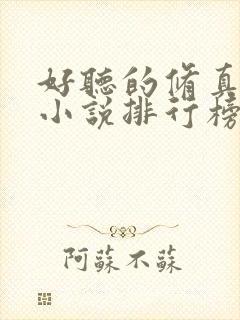 好聽的脩真
小說排行榜
阿蘇不蘇